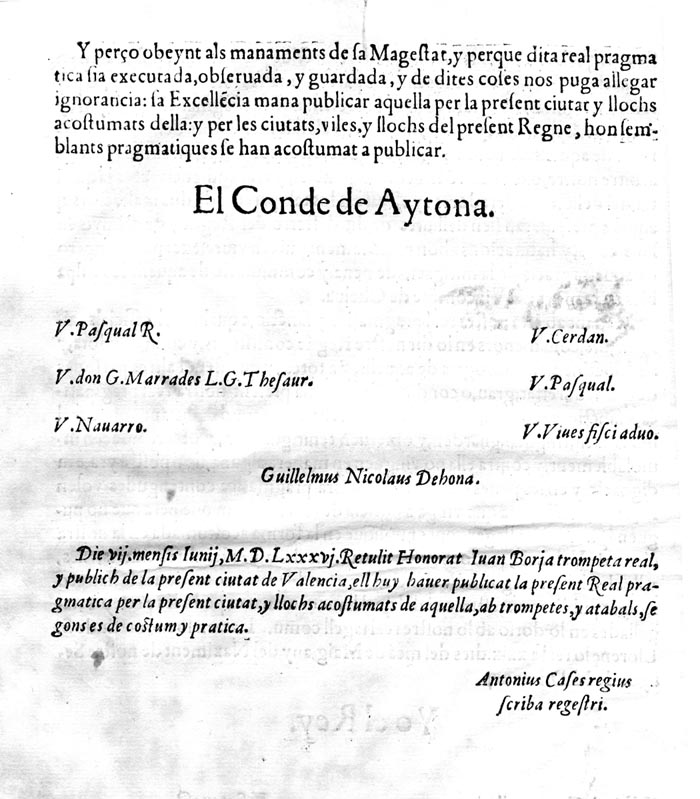 Y perço obeynt als manaments de ſa Mageſtat, y perque dita real pragma
tica ſia executada, obſeruada, y guardada, y de dites coſes nos puga allegar
ignorancia: ſa Excellẽcia mana publicar aquella per la preſent ciutat y llochs
acoſtumats della: y per les ciutats, viles, y llochs del preſent Regne, hon ſem-
blants pragmatiques ſe han acoſtumat a publicar.
El Conde de Aytona.
V. Paſqual R.
V. Cerdan.
V. don G. Marrades L. G. Theſaur.
V. Paſqual.
V. Nauarro.
V. Viues fiſci aduo.
Guillelmus Nicolaus Dehona.
Die vij. menſis Iunij, M. D. Lxxxvj. Retulit Honorat Iuan Borja trompeta real,
y publich de la preſent ciutat de Valencia, ell huy hauer publicat la preſent Real pra-
gmatica per la preſent ciutat, y llochs acoſtumats de aquella, ab trompetes, y atabals, ſe
gons es de coſtum y pratica.
Antonius Caſes regius
ſcriba regeſtri.